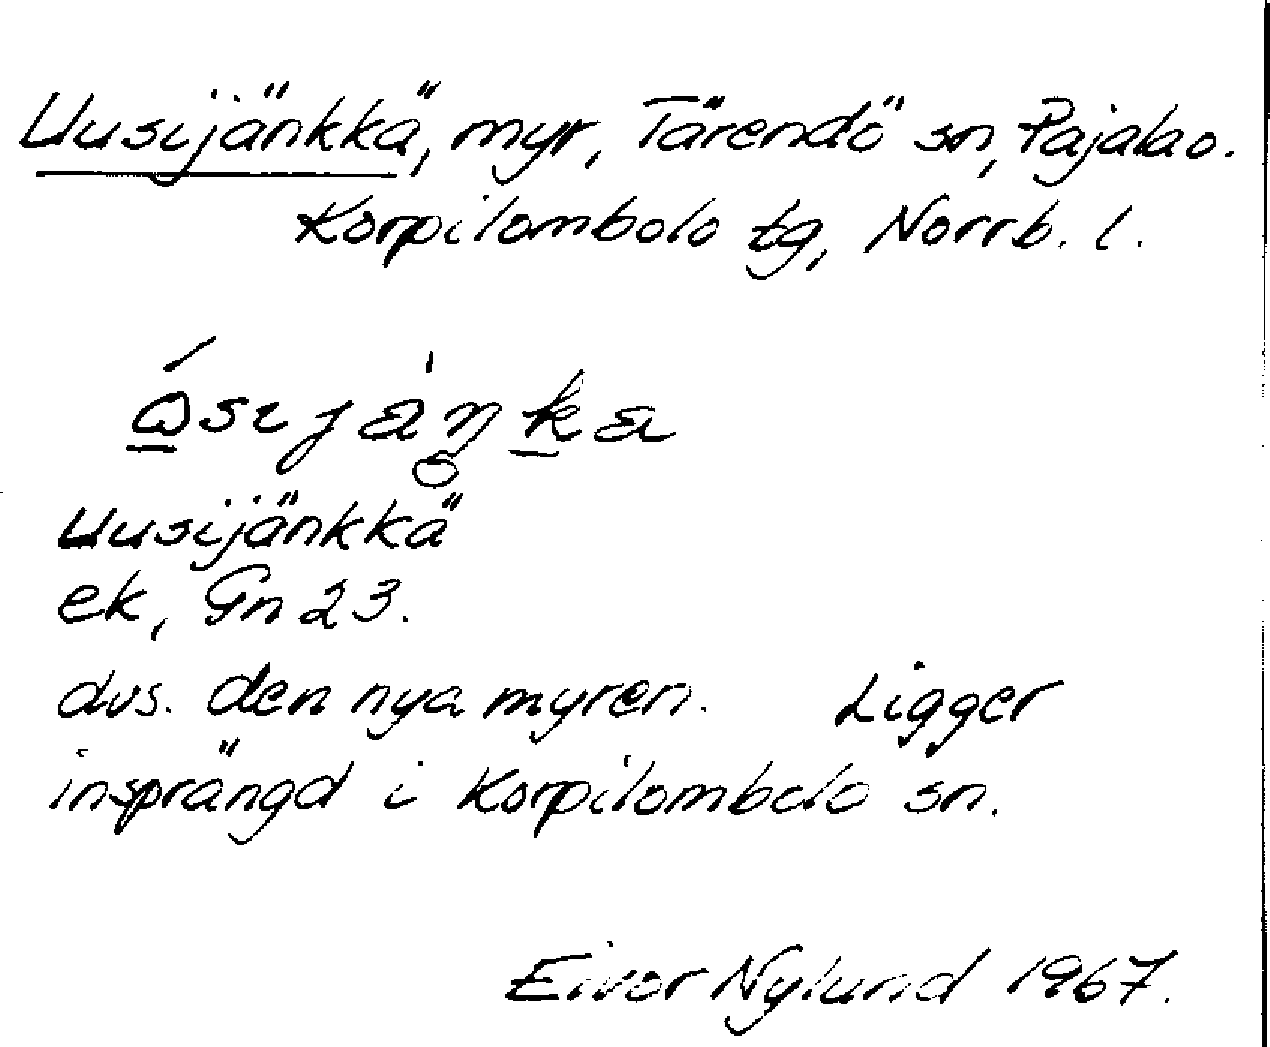 Uusijänkkä, myr, Tärendö sn, Pajala o.
Korpilombolo tg, Norrb. l.
Uusijänkkä
ek, Gn 23.
dvs. den nya myren. Ligger
insprängd i Korpilombolo sn.
Eivor Nylund 1967.